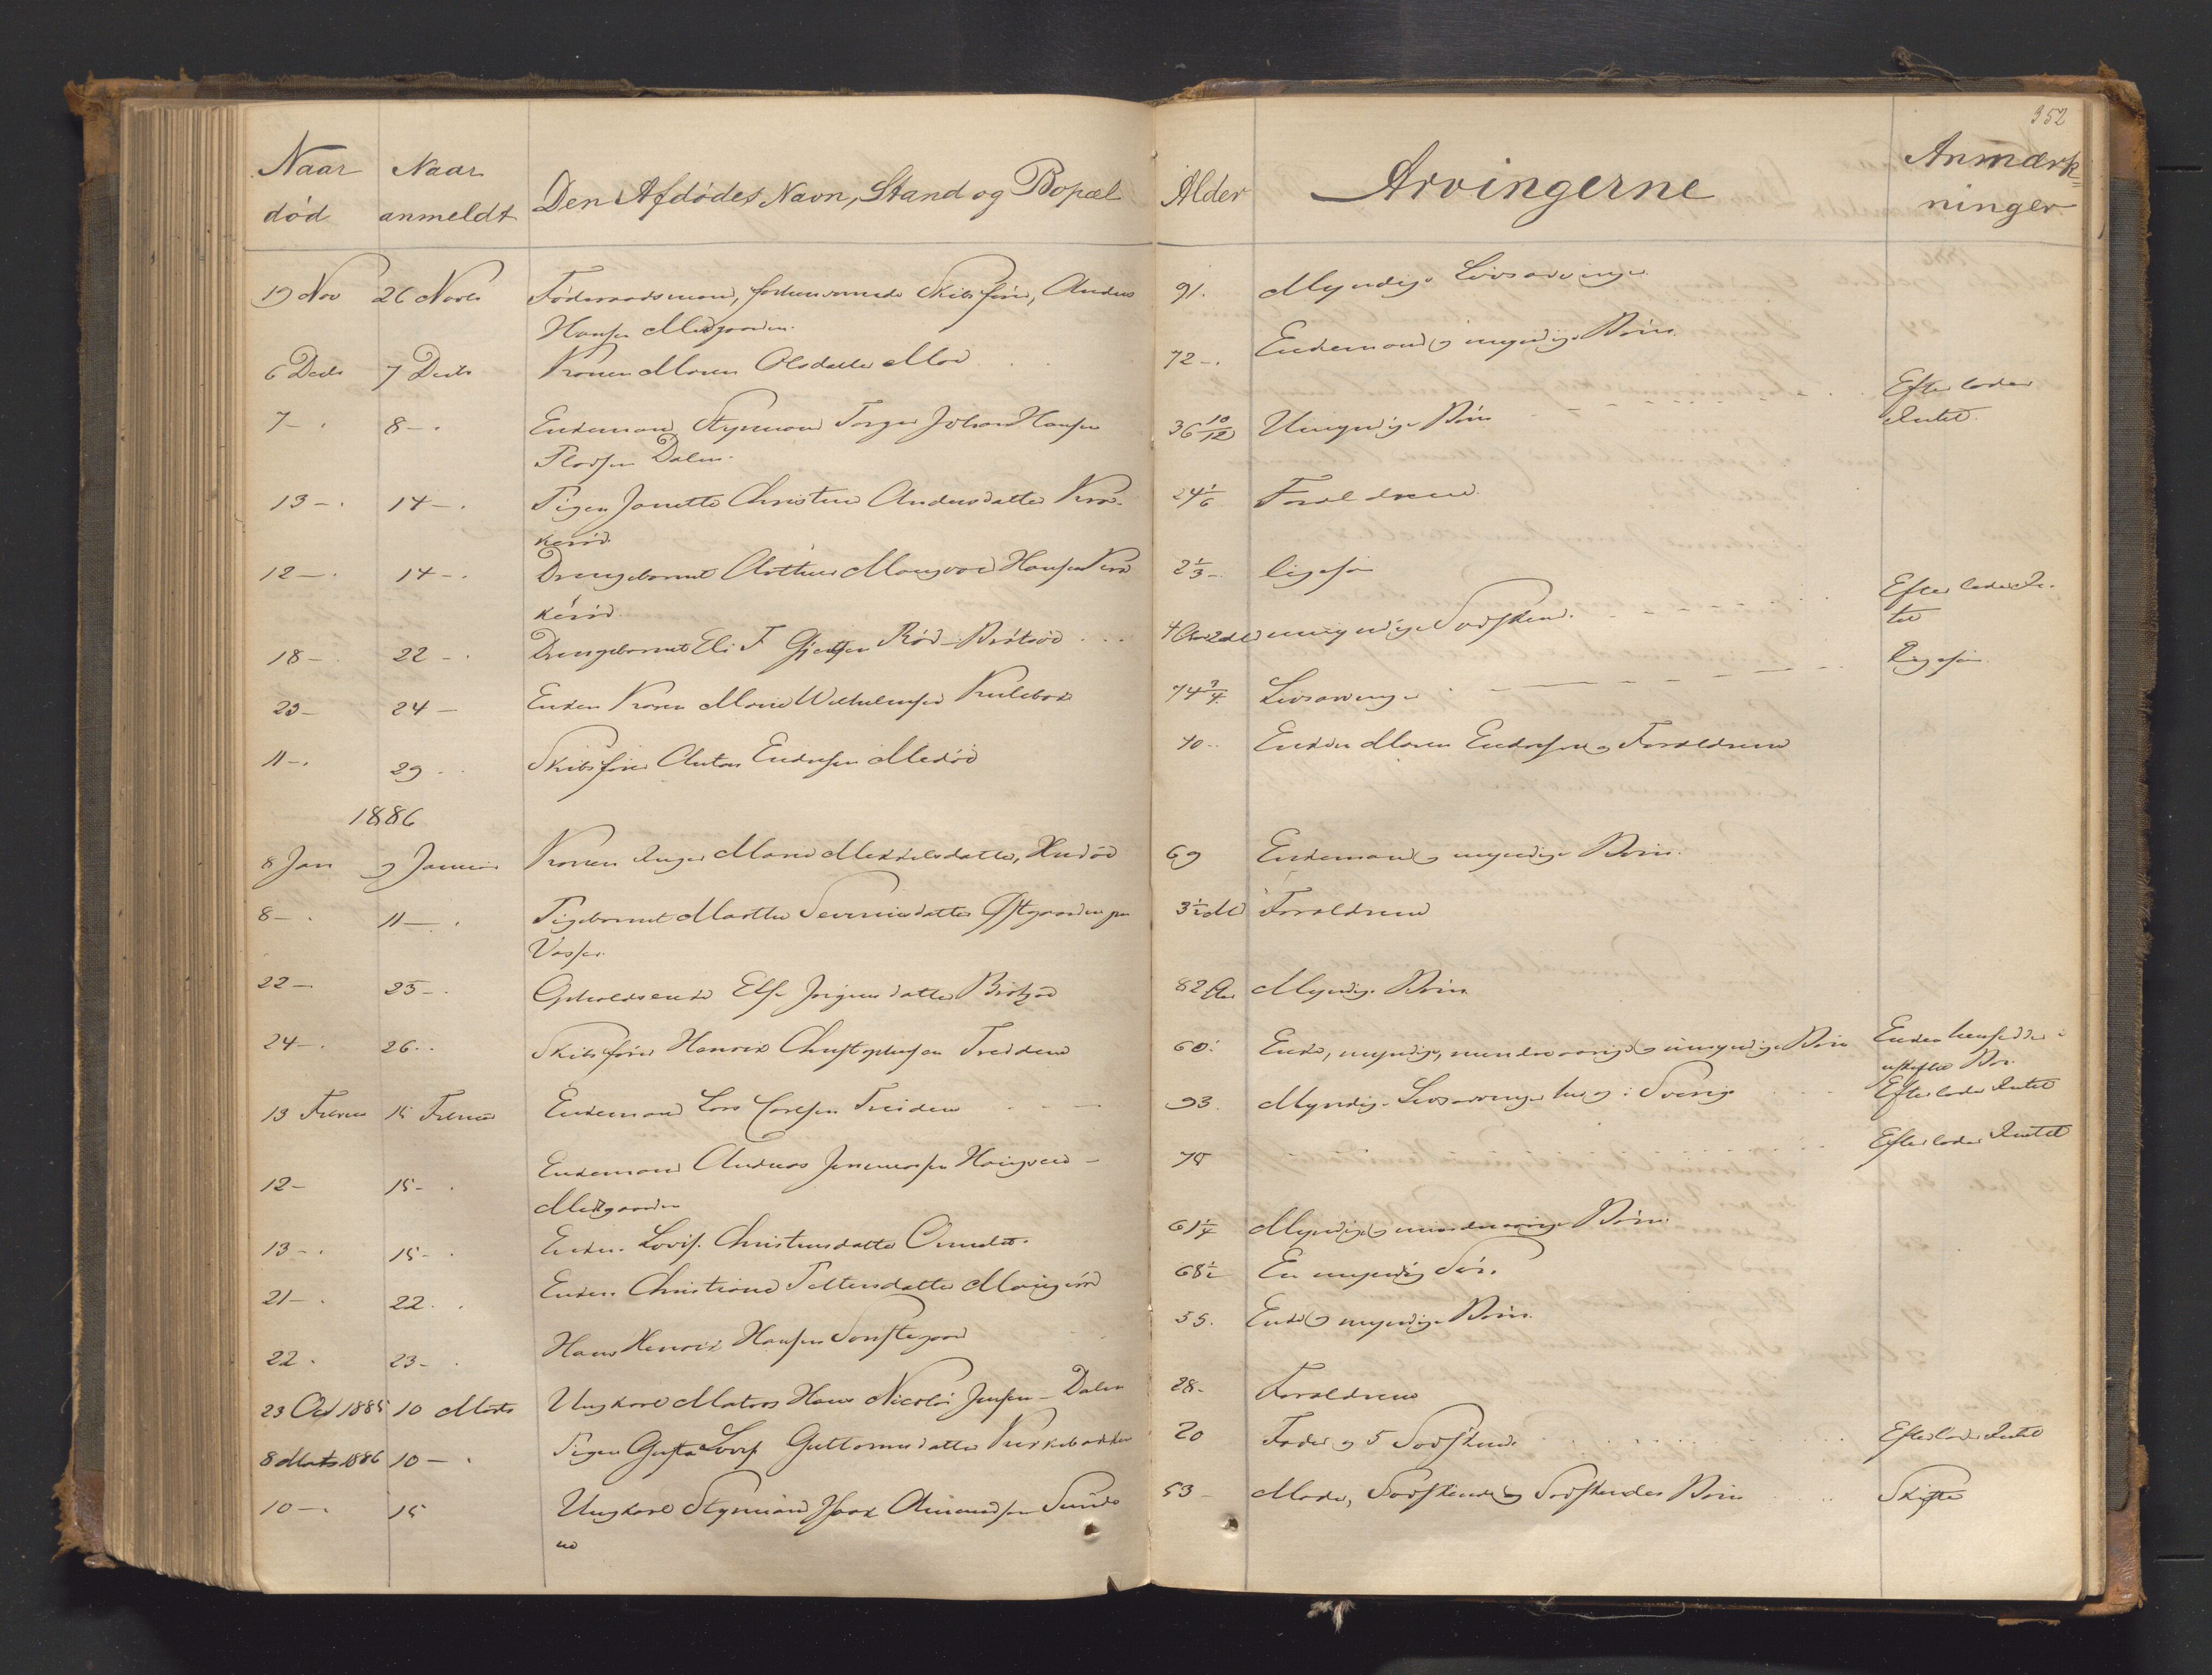 352
Naar død
Naar anmeldt
Den Afdødes Navn, Stand og Bopæl
Alder
Arvingerne
Anmærk=
ninger
19 Nov 26 Novbr Föderaadsmand, forhenværende Skibsförer, Anders 91. Myndige Livsarvinger
Hansen Midgaarden.
6 Decbr 7 Decbr Konen Maren Olsdatter Moe 72 -. Enkemand og myndige Börn.
7 - . 8 - . Enkemand Styrmand Torger Johan Hansen 36 10/12 Umyndige Börn Efterlader
Intet.
Dalen.
13 - . 14 - . Pigen Janette Christine Andersdatter Krø- 24 1/6 Forældrene
keröd.
12 - . 14 - . Drengebarnet Arthur Hansen Krø 2 1/3 - ligesaa
keröd.
18 - . 22 - . Drengebarnet Eli F Röd - Brötsö 4 umyndige Sødskende. Efterlader In-
tet
23 - 24 - Enken Karen Marie Wilhelmsen Kulebak 74 3/4 Livsarvinger Ligesaa
11 - . 29 . . Skibsförer Anton Enersen Medöd 40 - Enken Maren Enersen og Forældrene
1886
8 Jan 9 Januar Konen Inger Marie Mikkelsdatter, Hudöd 69 Enkemand og myndige Börn.
8 - . 11 - . Pigebarnet Marthe Severinsdatter Østgaarden paa 3 1/2 M Forældrene
Vasser.
22 - 25 - . Opholdsenke Else Jörgensdatter Brötsö 82 Aar Myndige Börn
24 - . 26 . . Skibsförer Henrik Christophersen Treidene 60 . Enke, myndige, mindreaarige og umyndige Börn Enken hensidder i
uskiftet Bo.
13 Februar 15 Februar Enkemand Lars Carlsen Treidene 93. Myndige Livsarvinger her og i Sverige Efterlader Intet
12 - 15 - . Enkemand Andreas 75 Efterlader Intet
Midgaarden
13 - . 15 - . Enken Lovise Christensdatter 61 1/4 Myndige og mindreaarige Börn.
21 - . 22 . . Enken Christiane Pettersdatter 68 1/2 En myndig Sön.
22 . 23 - . Hans Henrik Hansen 55. Enke og myndige Börn.
23 Oct 1885 10 Marts Ungkarl Matros Hans Nicolai Jensen - Dalen 28 - Forældrene
8 Marts 1886 10 - . Pigen Lovise Guttormsdatter Kirkebakken 20 Fader og 5 Sødskende Efterlader Intet
10 - . 15 Ungkarl Styrmand Isaak Amundsen Sunde 53 - Moder, Sødskende og Sødskendes Börn Skifte
ne